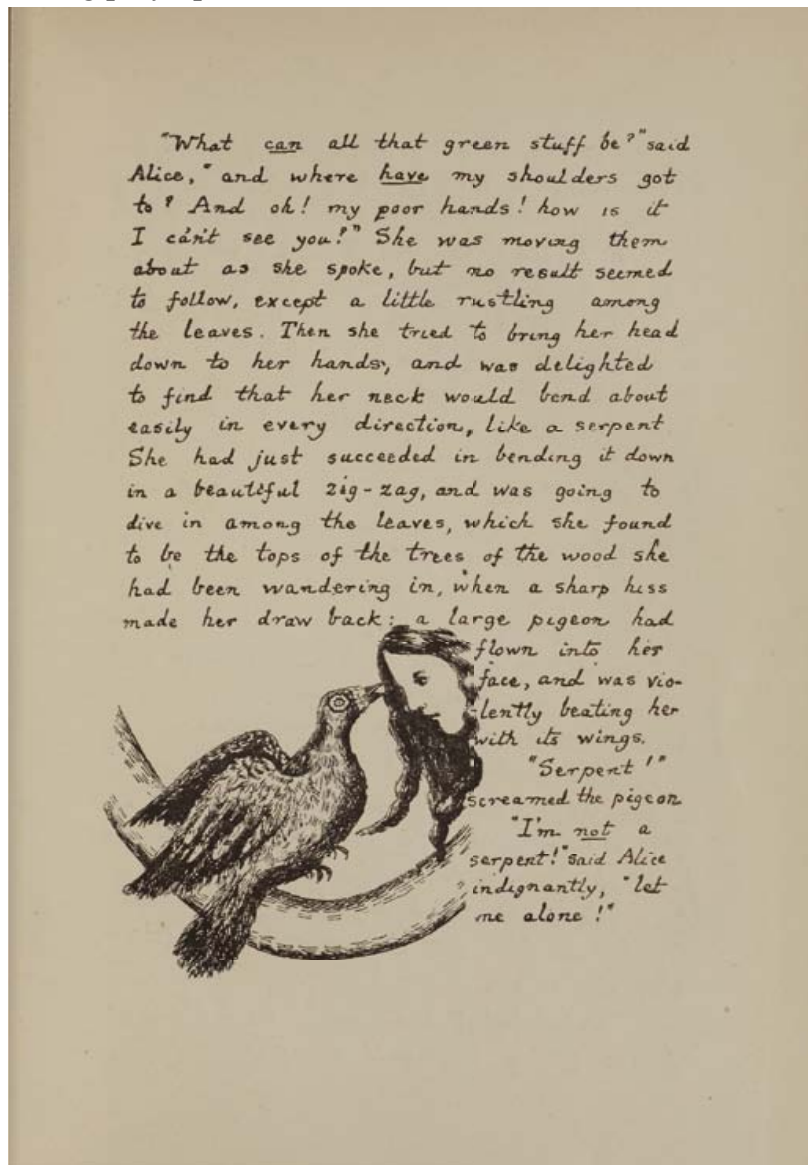 "What can all that green stuff be?" said
Alice, "and where have my shoulders got
to? And oh! my poor hands! how is it
I ca'n't see you?" She was moving them
about as she spoke, but no result seemed
to follow, except a little rustling among
the leaves. Then she tried to bring her head
down to her hands, and was delighted
to find that her neck would bend about
easily in every direction, like a serpent
She had just succeeded in bending it down
in a beautiful zig-zag, and was going to
dive in among the leaves, which she found
to be the tops of the trees of the wood she
had been wandering in, when a sharp hiss
made her draw back: a large pigeon had
flown into her
face, and was vio-
-lently beating her
with its wings.
"Serpent!"
screamed the pigeon
"I'm not a
serpent!" said Alice
indignantly, "let
me alone!"